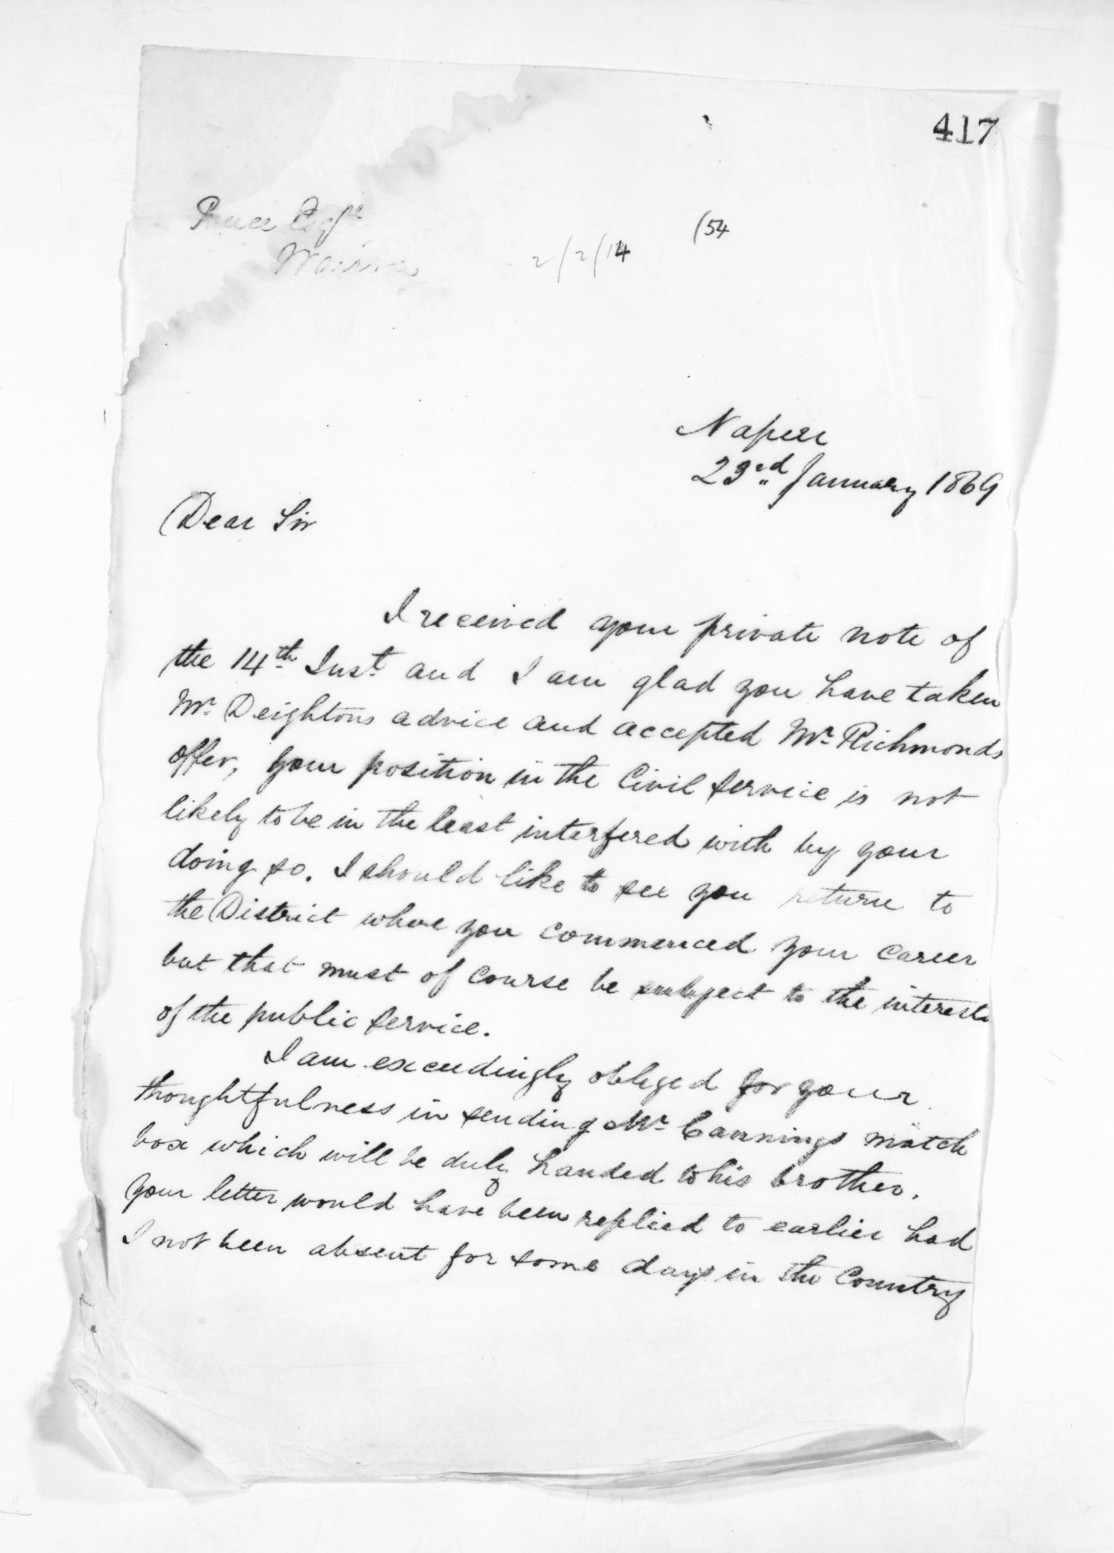 417
Esqre
(54
2/2/14
Napier
23rd January 1869
Dear Sir
I received your private note of
the 14th Inst. and I am glad you have taken
Mr. Deightons advice and accepted Mr. Richmonds
offer, your position in the Civil Service is not
likely to be in the least interfered with by your
doing so. I should like to see you return to
the District where you commenced your career
but that must of course be subject to the interests
of the public service.
I am exceedingly obliged for your
thoughtfulness in sending Mr. Cannings match
box which will be duly handed to his brother.
Your letter would have been replied to earlier had
I not been absent for some days in the Country